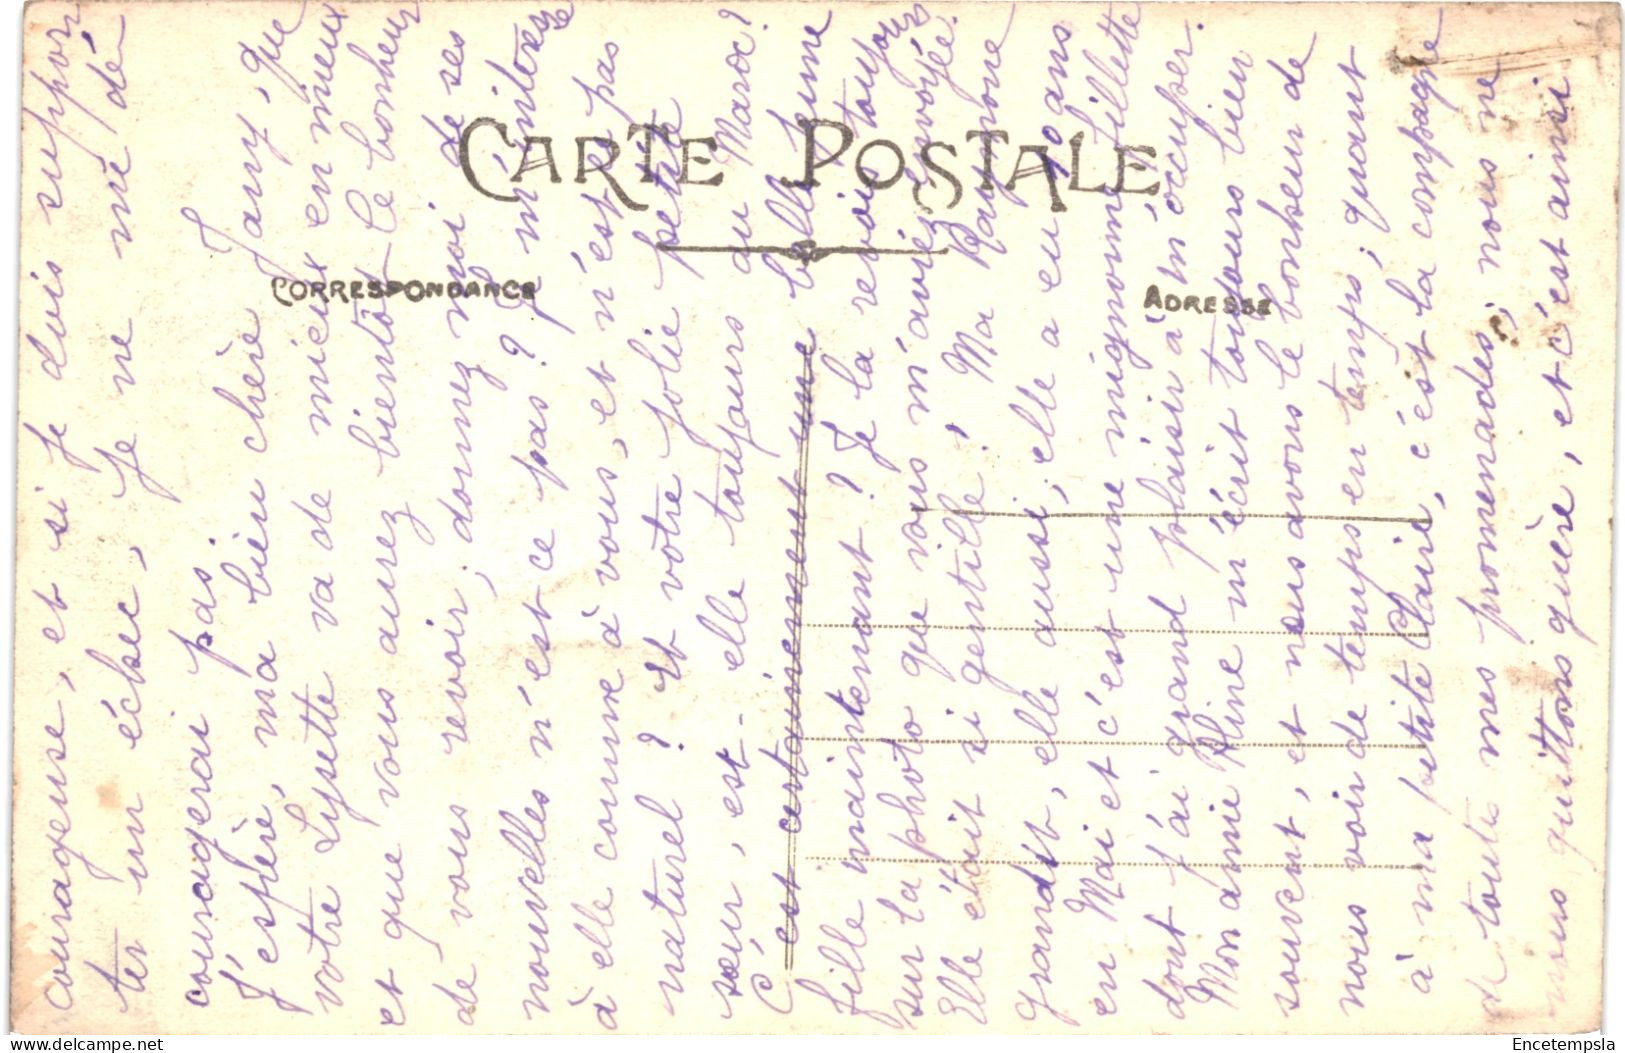 CARTE POSTALE
CORRESPONDANCE
ADRESSE
courageuse, et si je dois suppor
ter un échec, je ne me dé
couragerai pas.
J'espère, ma bien chère Jany, que
votre Lysette va de mieux en mieux
et que vous aurez bientôt le bonheur
de vous revoir, donnez moi de ses
nouvelles n'est ce pas? Je m'intéresse
à elle comme à vous, et n'est ce pas
naturel? Et votre jolie petite
sœur, est-elle toujours au Maroc?
C'est certainement une belle jeune
fille maintenant? Je la revois toujours
sur la photo que vous m'aviez envoyée.
Elle était si gentille! Ma Raymone
grandit, elle aussi, elle a eu 10 ans
en Mai et c'est une mignonne fillette
dont j'ai grand plaisir à m'occuper.
Mon amie Aline m'écrit toujours bien
souvent, et nous avons le bonheur de
nous voir de temps en temps; quant
à ma petite Claire, c'est la compagne
de toutes mes promenades, nous ne
nous quittons guère, et c'est ainsi
Encetempsla